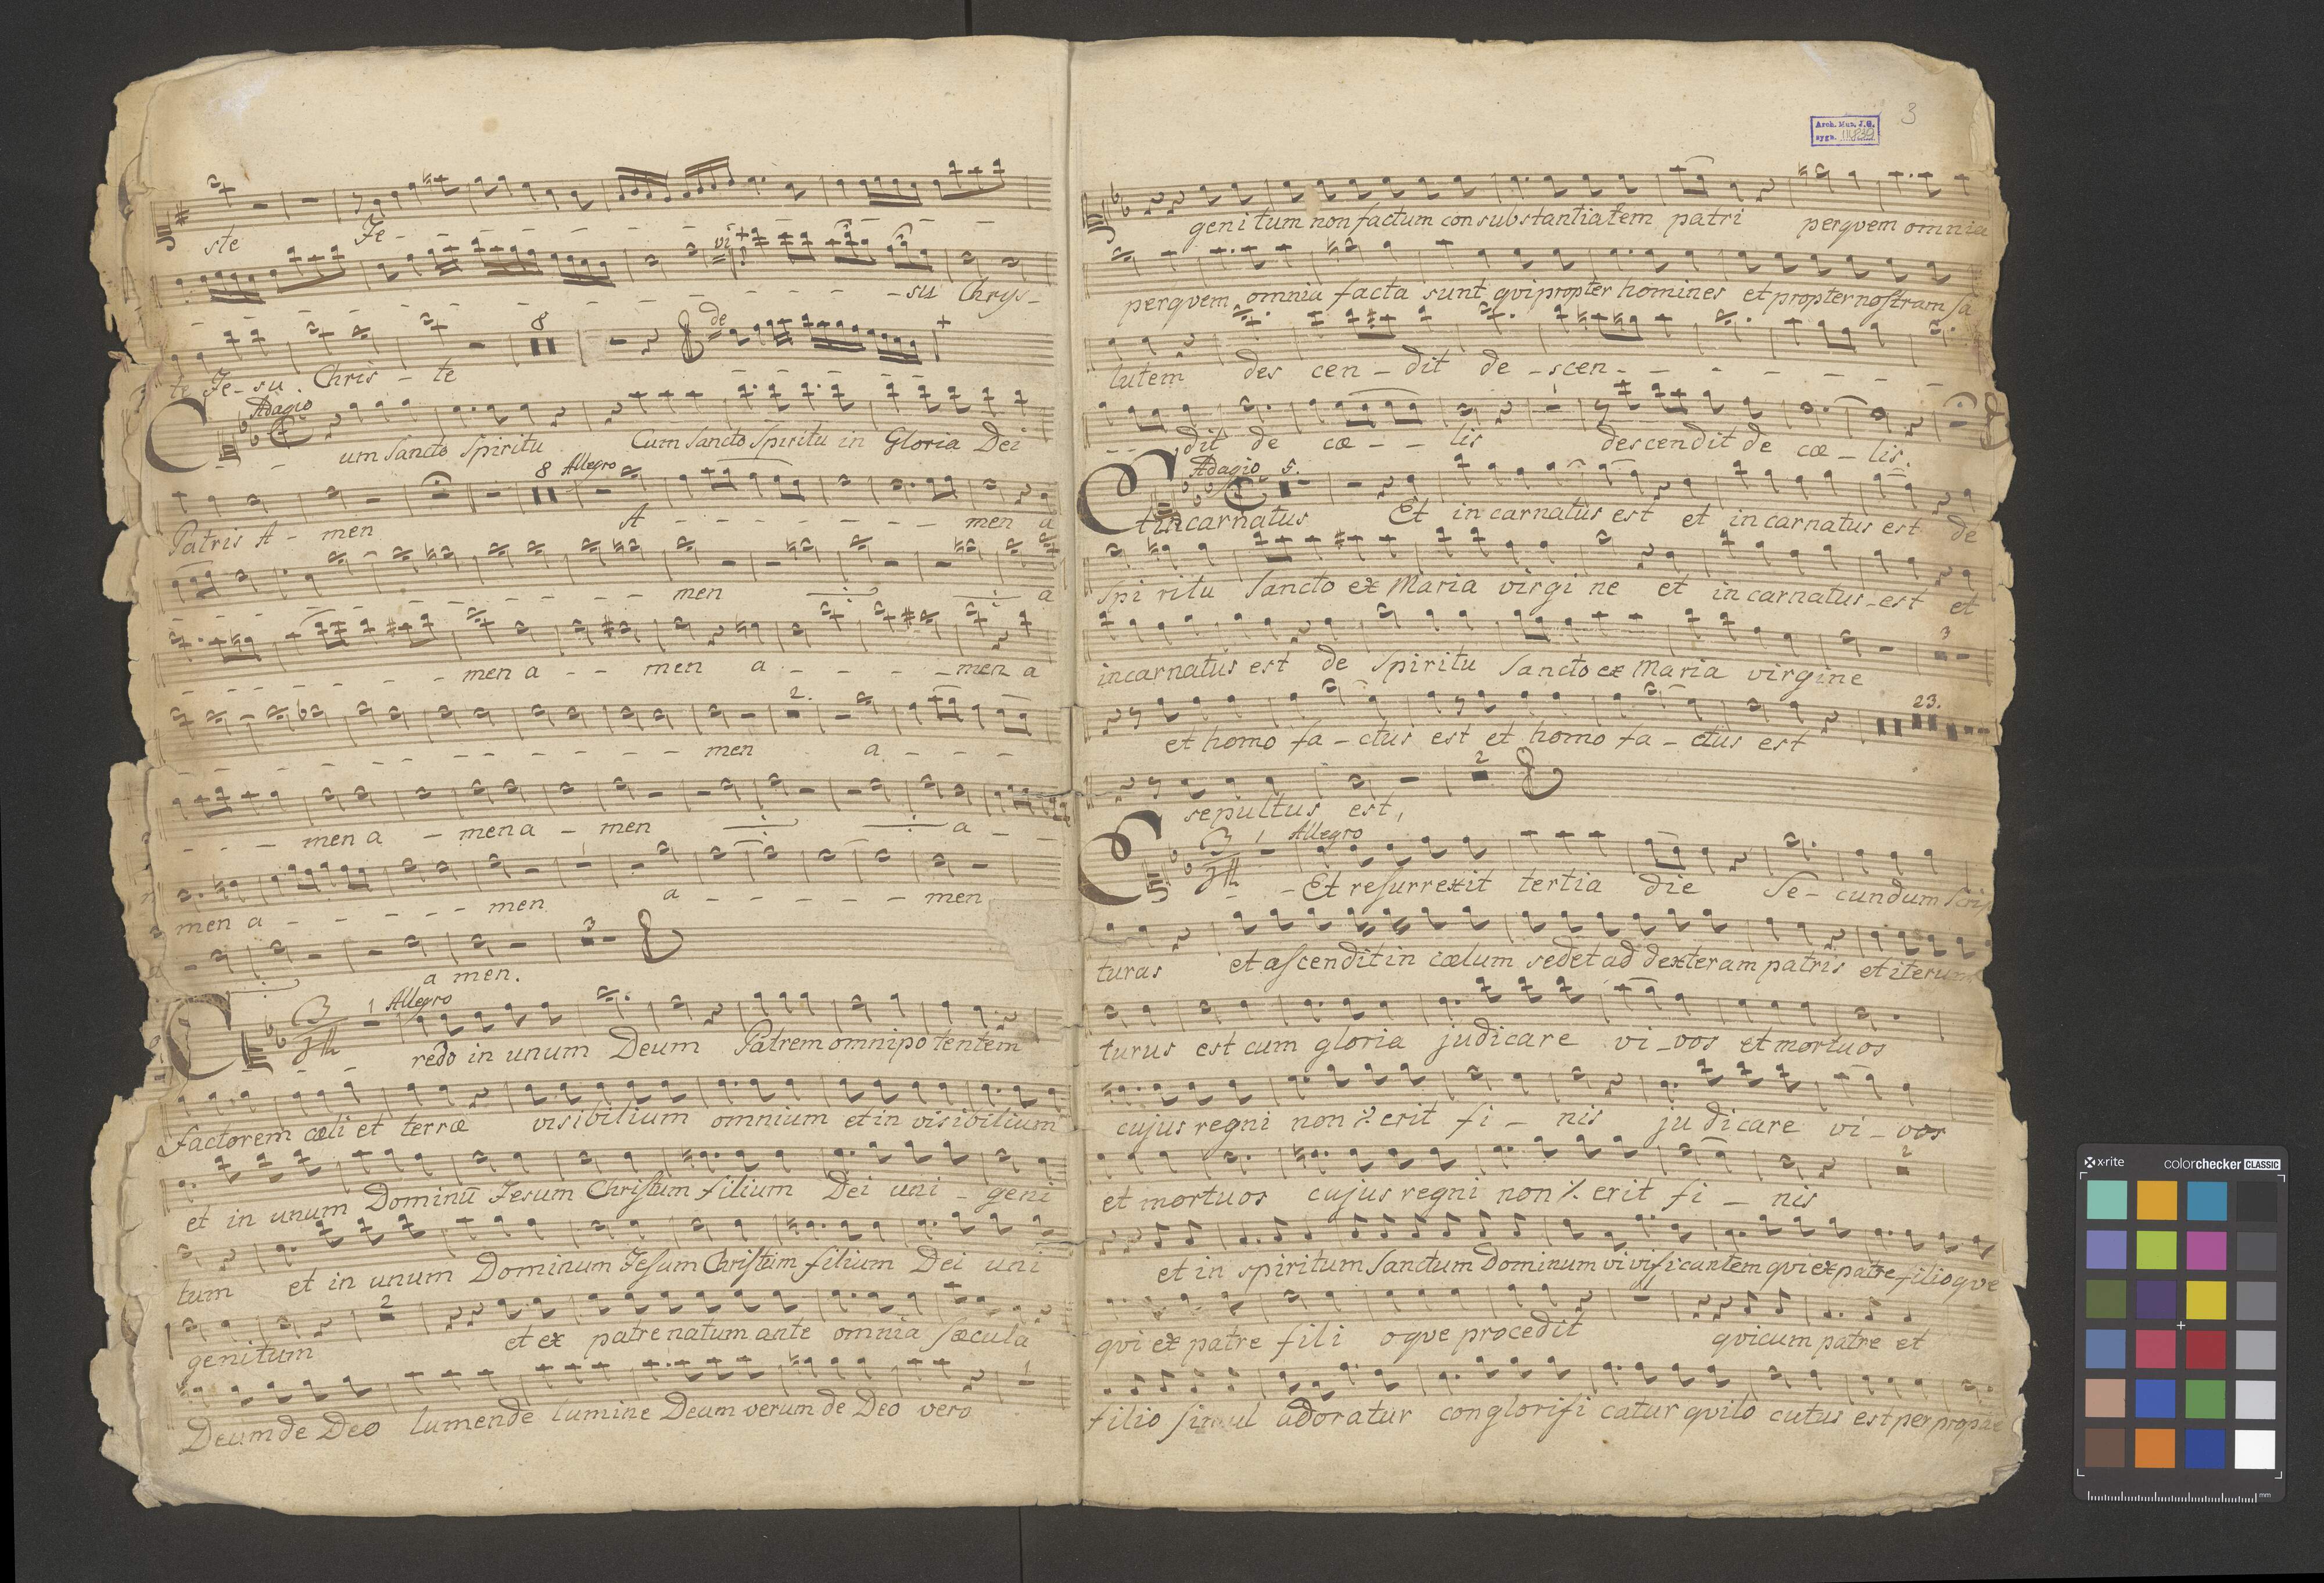 ste Je - - - - - - - -
vi
- - - - - - - - - su Chrys -
8 de
te Je - su. Chris - te
Adagio
Cum Sancto Spiritu Cum Sancto Spiritu in Gloria Dei
8 Allegro
Patris A - men A - - - - - - - men a
- - - - - - - - men a
- - - - - - men a - - men a - - - - men a
2.
- - - - - - - - - men a - - -
- - - men a - men a - men a - -
men a - - - - - men a - - - - - men
3
a men.
3 1 Allegro
Credo in unum Deum Patrem omnipotentem
factorem cœli et terræ visibilium omnium et in visibilium
et in unum Dominū Jesum Christum filium Dei uni - geni
tum et in unum Dominum Jesum Christum filium Dei uni
2
genitum et ex patre natum ante omnia sæcula
1
Deum de Deo lumen de lumine Deum verum de Deo vero
3
Arch. Muz. J.G.
sygn. III 839
genitum non factum con substantialem patri per qvem omnia
per qvem omnia facta sunt qvi propter homines et propter nostram sa
lutem des cen - dit de - scen - - - - - -
1
- - dit de cœ - - lis descendit de cœ - lis.
Adagio 5.
Et incarnatus Et in carnatus est et in carnatus est de
Spi ritu Sancto ex Maria virgi ne et in carnatus - est et
3
incarnatus est de Spiritu Sancto ex Maria virgine
23.
et homo fa - ctus est et homo fa - ctus est
2
sepultus est,
3 1 Allegro
- Et resurrexit tertia die Se - cundum Scrip
turas et ascendit in cœlum sedet ad dexteram patris et iterum
turus est cum gloria judicare vi - vos et mortuos
cujus regni non ⁒ erit fi - nis ju dicare vi - vos
2
et mortuos cujus regni non ⁒ erit fi - nis
et in spiritum Sanctum Dominum vivificantem qvi ex patre filioqve
1
qvi ex patre fili o qve procedit qvi cum patre et
filio simul adoratur con glorifi catur qvi lo cutus est per prophe
x-rite colorchecker CLASSIC
mm